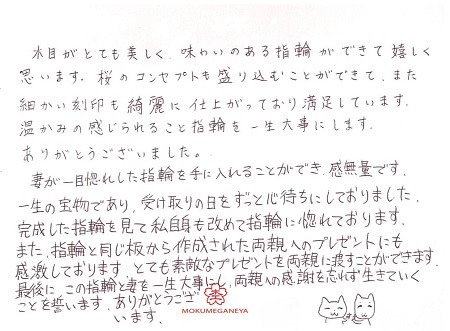 木目がとても美しく、味わいのある指輪ができて嬉しく
思います。桜のコンセプトも盛り込むことができて、また
細かい刻印も綺麗に仕上がっており満足しています。
温かみの感じられること指輪を一生大事にします。
ありがとうございました。
妻が一目惚れした指輪を手に入れることができ、感無量です。
一生の宝物であり、受け取りの日をずっと心待ちにしておりました。
完成した指輪を見て私自身も改めて指輪に惚れております。
また、指輪と同じ板から作成された両親へのプレゼントにも
感激しております。とても素敵なプレゼントを両親に渡すことができます。
最後に、この指輪と妻を一生大事にし、両親への感謝を忘れず生きていく
ことを誓います。ありがとうござ
います。
MOKUMEGANEYA